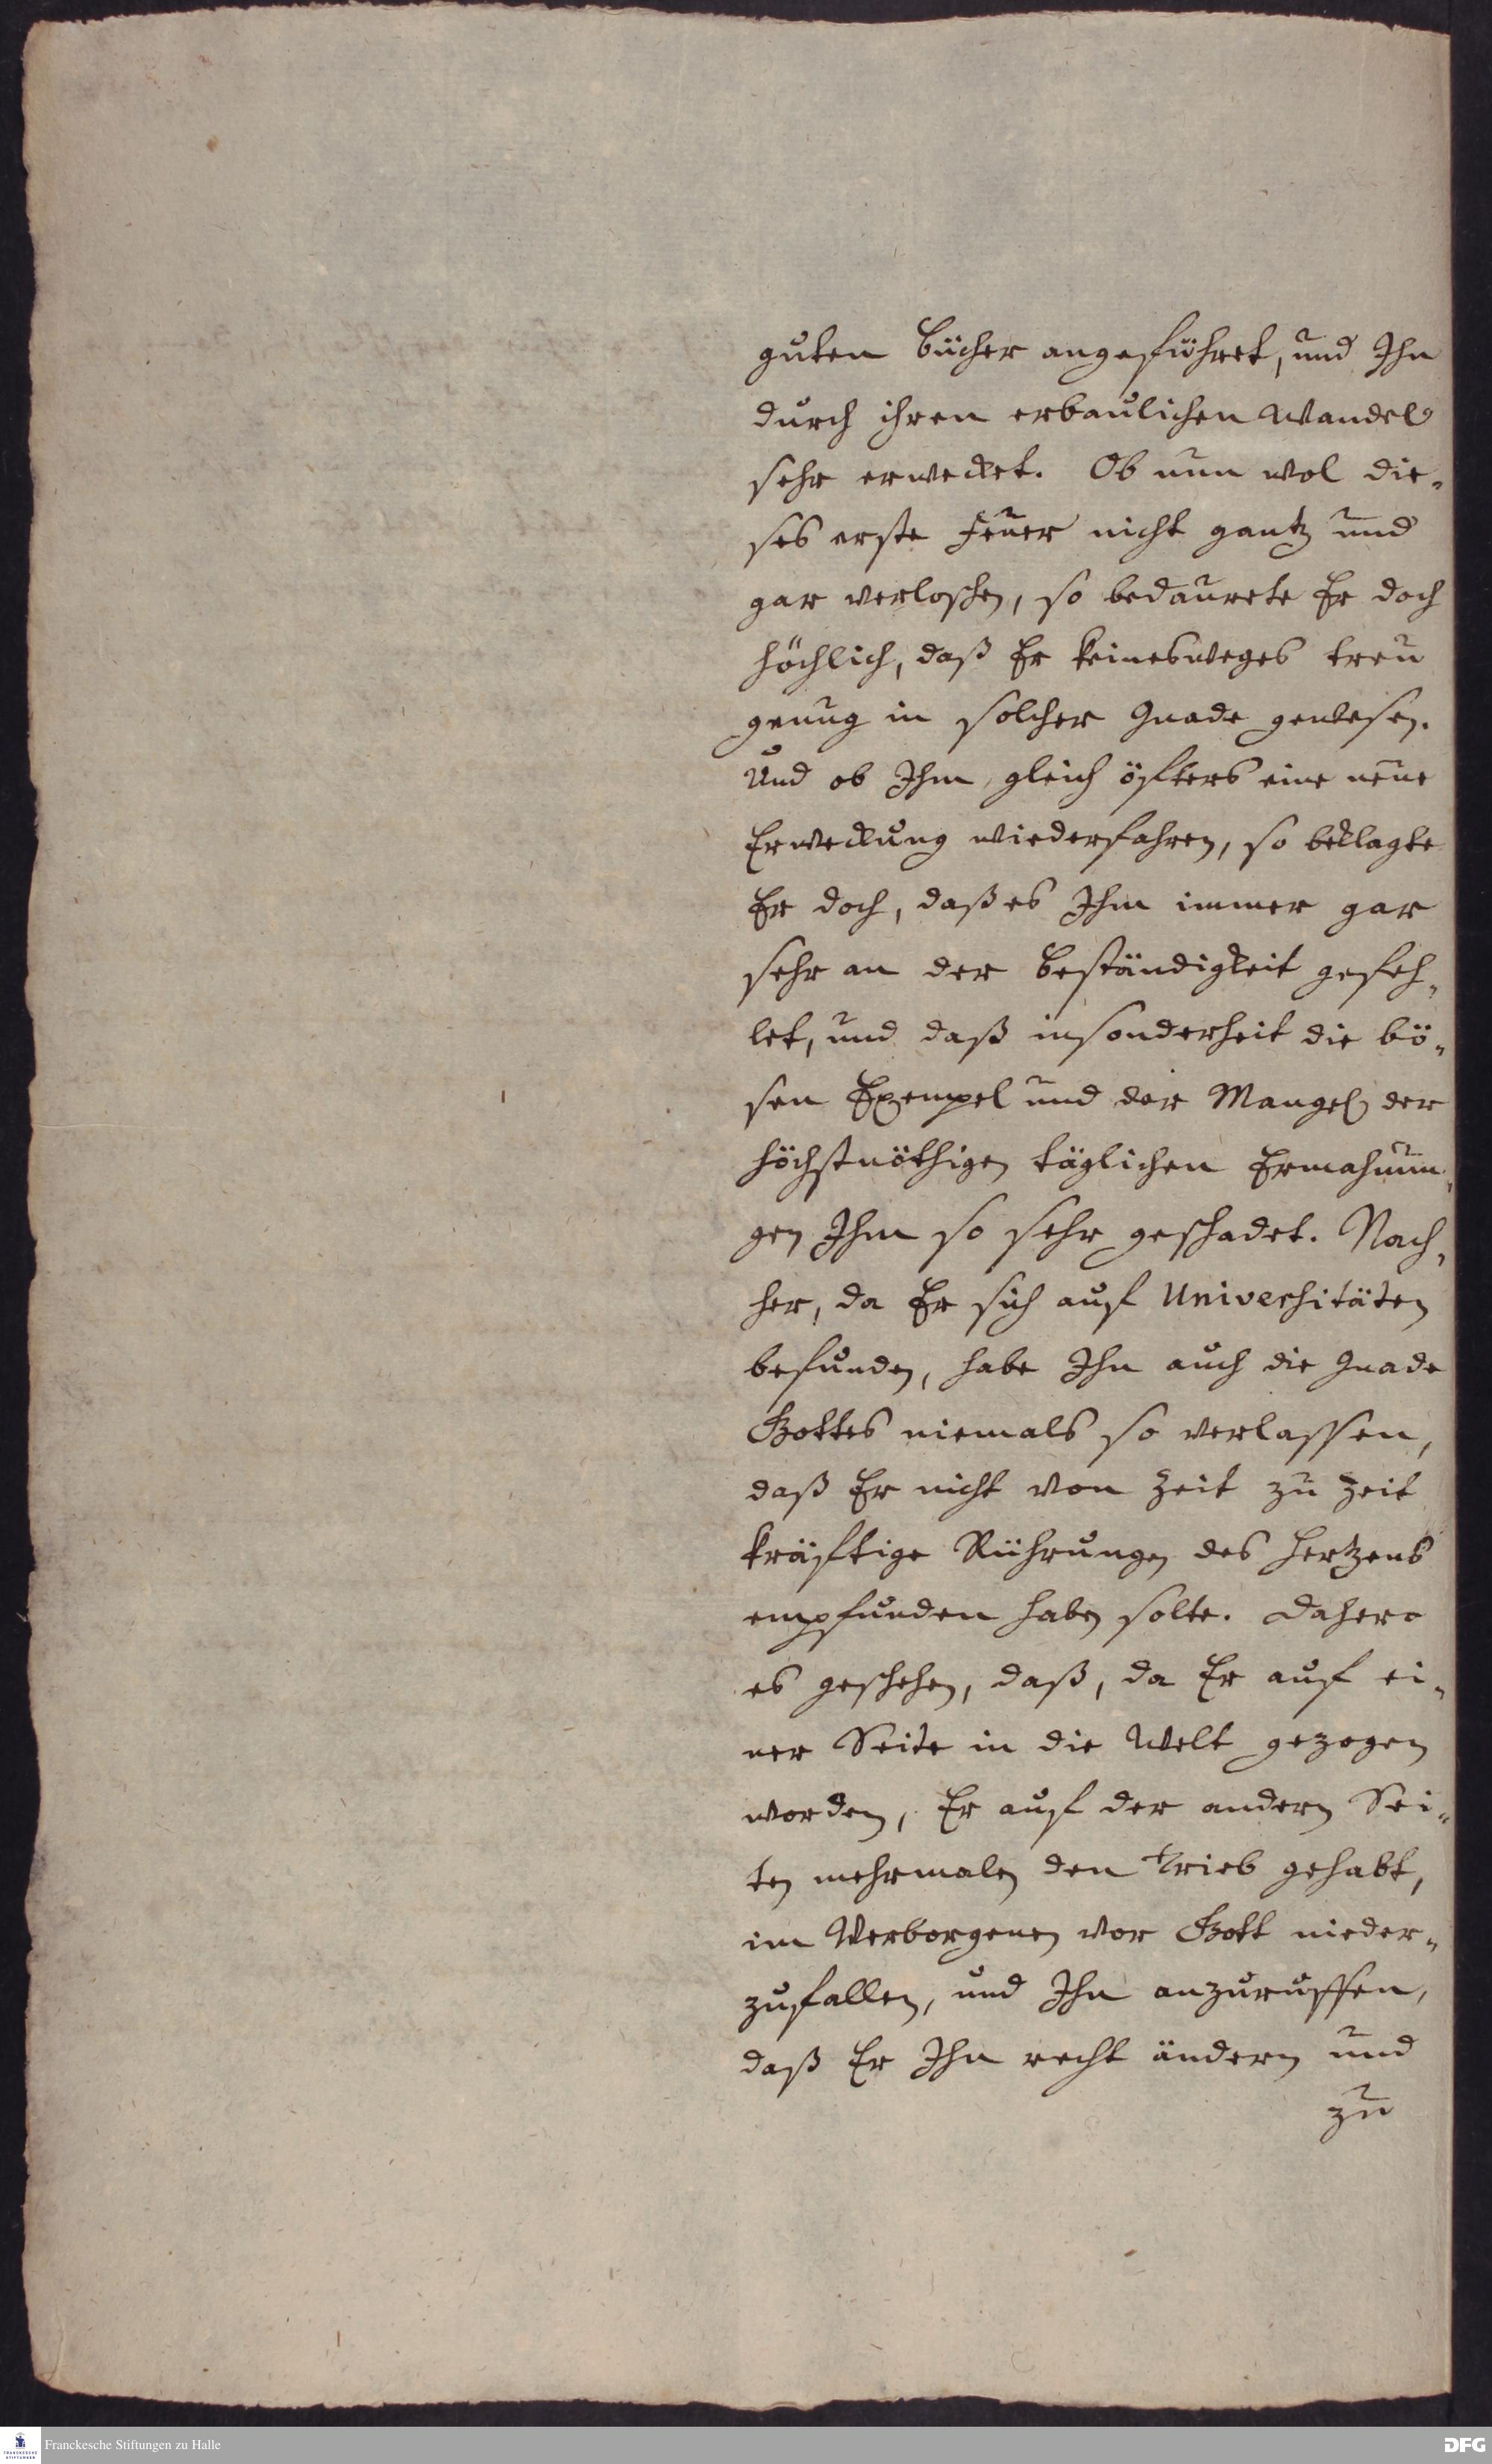 guten Bücher angeführet, und Ihn
durch ihren erbaulichen Wandel
sehr erwecket. Ob nun wol die-
ses erste Feuer nicht gantz und
gar verloschen, so bedaurete Er doch
höchlich, daß Er keinesweges treu
genug in solcher Gnade gewesen.
Und ob Ihm gleich öfters eine neue
Erweckung wiederfahren, so beklagte
Er doch, daß es Ihm immer gar
sehr an der Beständigkeit gefeh-
let, und daß insonderheit die bö-
sen Exempel und der Mangel der
höchstnöthigen täglichen Ermahnun-
gen Ihm so sehr geschadet. Nach-
her, da Er sich auf Universitäten
befunden, habe Ihn auch die Gnade
Gottes niemals so verlassen,
daß Er nicht von Zeit zu Zeit
kräftige Rührungen des Hertzens
empfunden haben solte. Dahero
es geschehen, daß, da Er auf ei-
ner Seite in die Welt gezogen
worden, Er auf der andern Sei-
ten mehrmalen den Trieb gehabt,
im Verborgenen vor Gott nieder-
zufallen, und Ihn anzuruffen,
daß Er Ihn recht ändern und
zu
Franckesche Stiftungen zu Halle
DFG